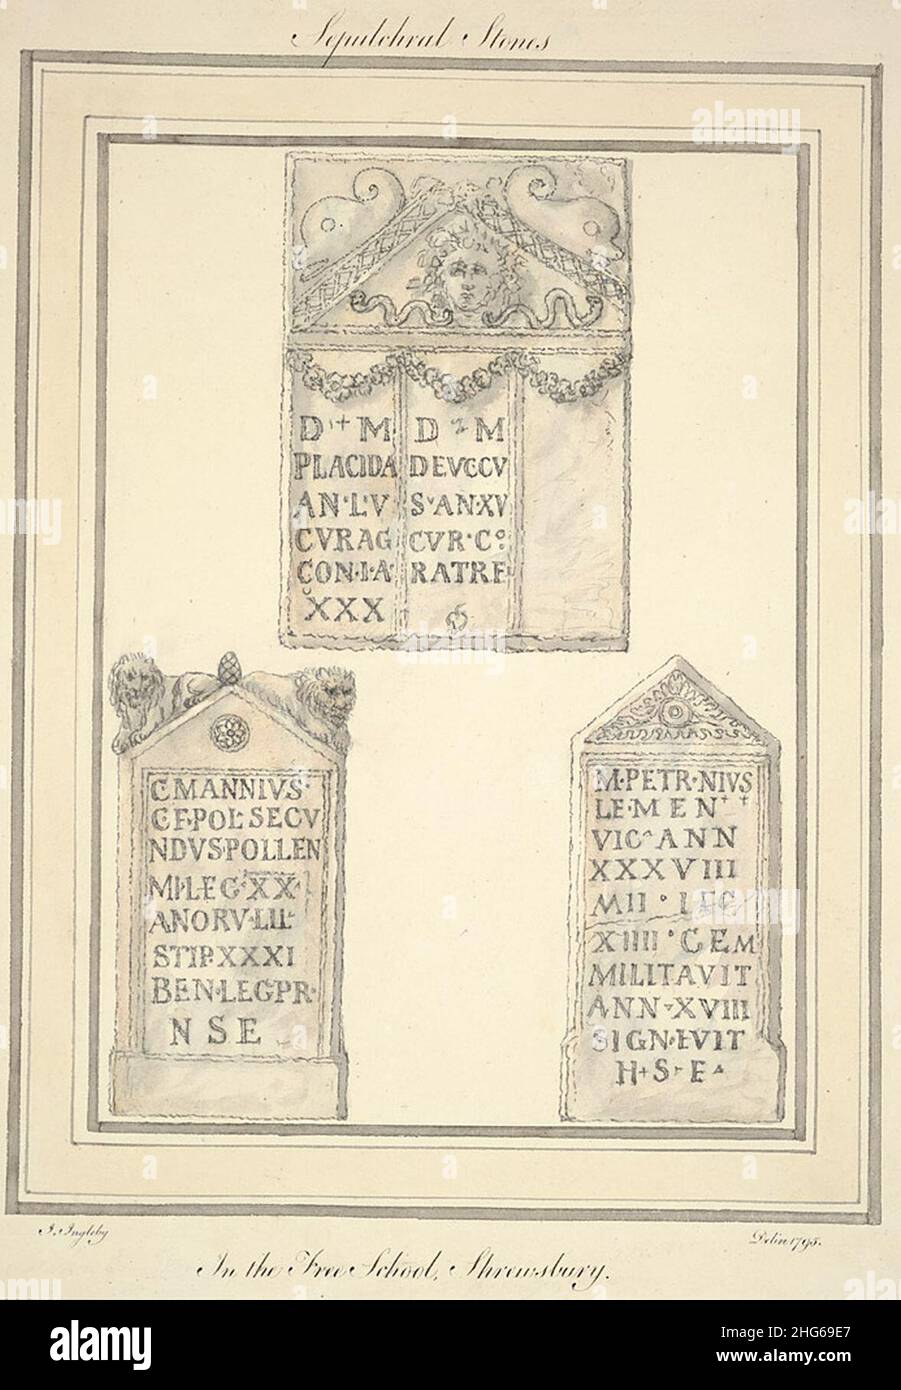 Sepulchral Stones
D + M
PLACIDA
AN·L·V
CVRAG
CON·I·A
XXX
D M
DEVCCV
S·AN·XV
CVR·Co
RATRE
C·MANNIVS·
C·F·POL·SECV
NDVS·POLLEN
MI·LEG·XX·
ANORV·LII·
STIP·XXXI
BEN·LEG·PR·
N S E
M·PETR·NIVS
LE·M E N
VIC ANN
XXXVIII
MII · LEG
XIIII ° GEM
MILITAVIT
ANN·XVIII
SIGN·FVIT
H+S+E
J. Ingleby
Delin 1795.
In the Free School, Shrewsbury.
alamy
Image ID: 2HG69E7
www.alamy.com